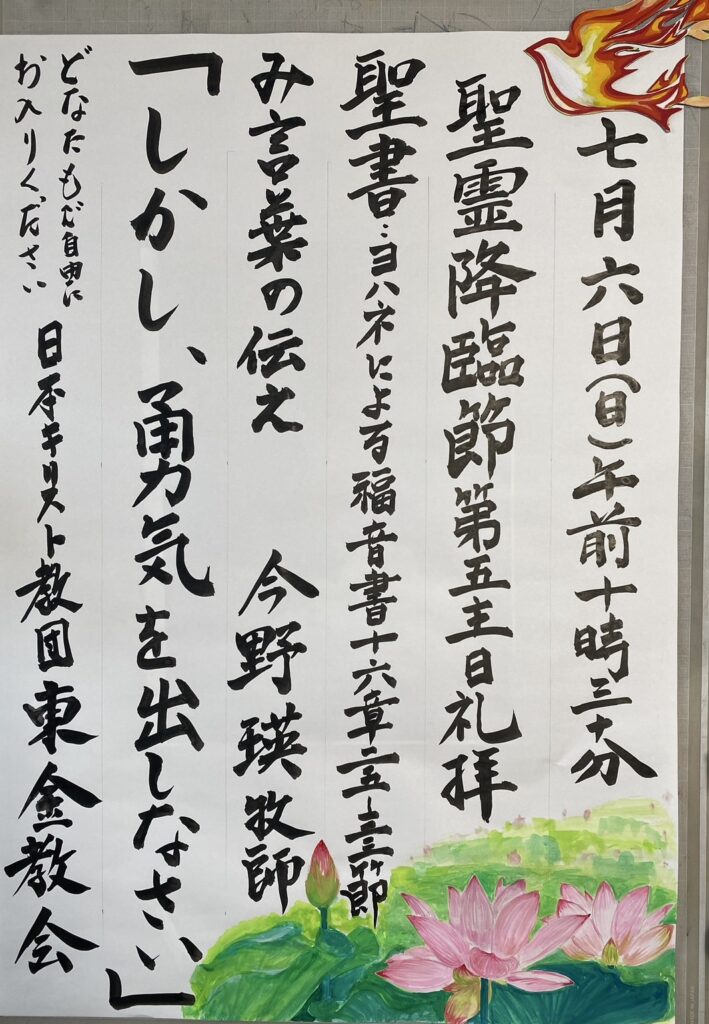 七月六日(日)午前十時三十分
聖霊降臨節第五主日礼拝
聖書:ヨハネによる福音書十六章二五-三三節
み言葉の伝え 今野瑛牧師
「しかし、勇気を出しなさい」
どなたもご自由に
お入りください
日本キリスト教団東金教会